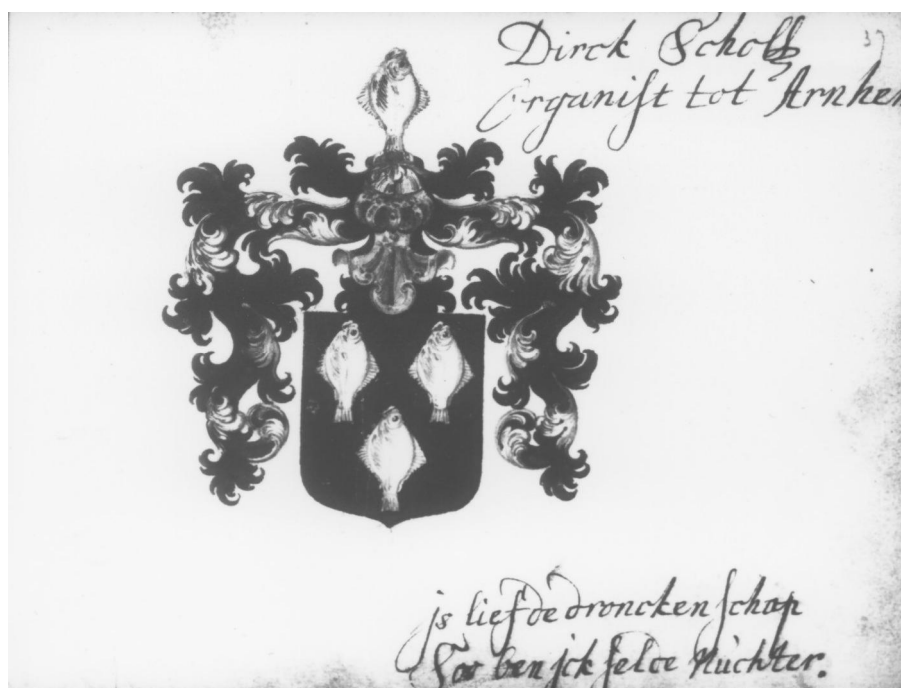 Dirck Scholl
37
Organist tot Arnhem
js liefde dronckenschap
Soo ben jck selde Nuchter.